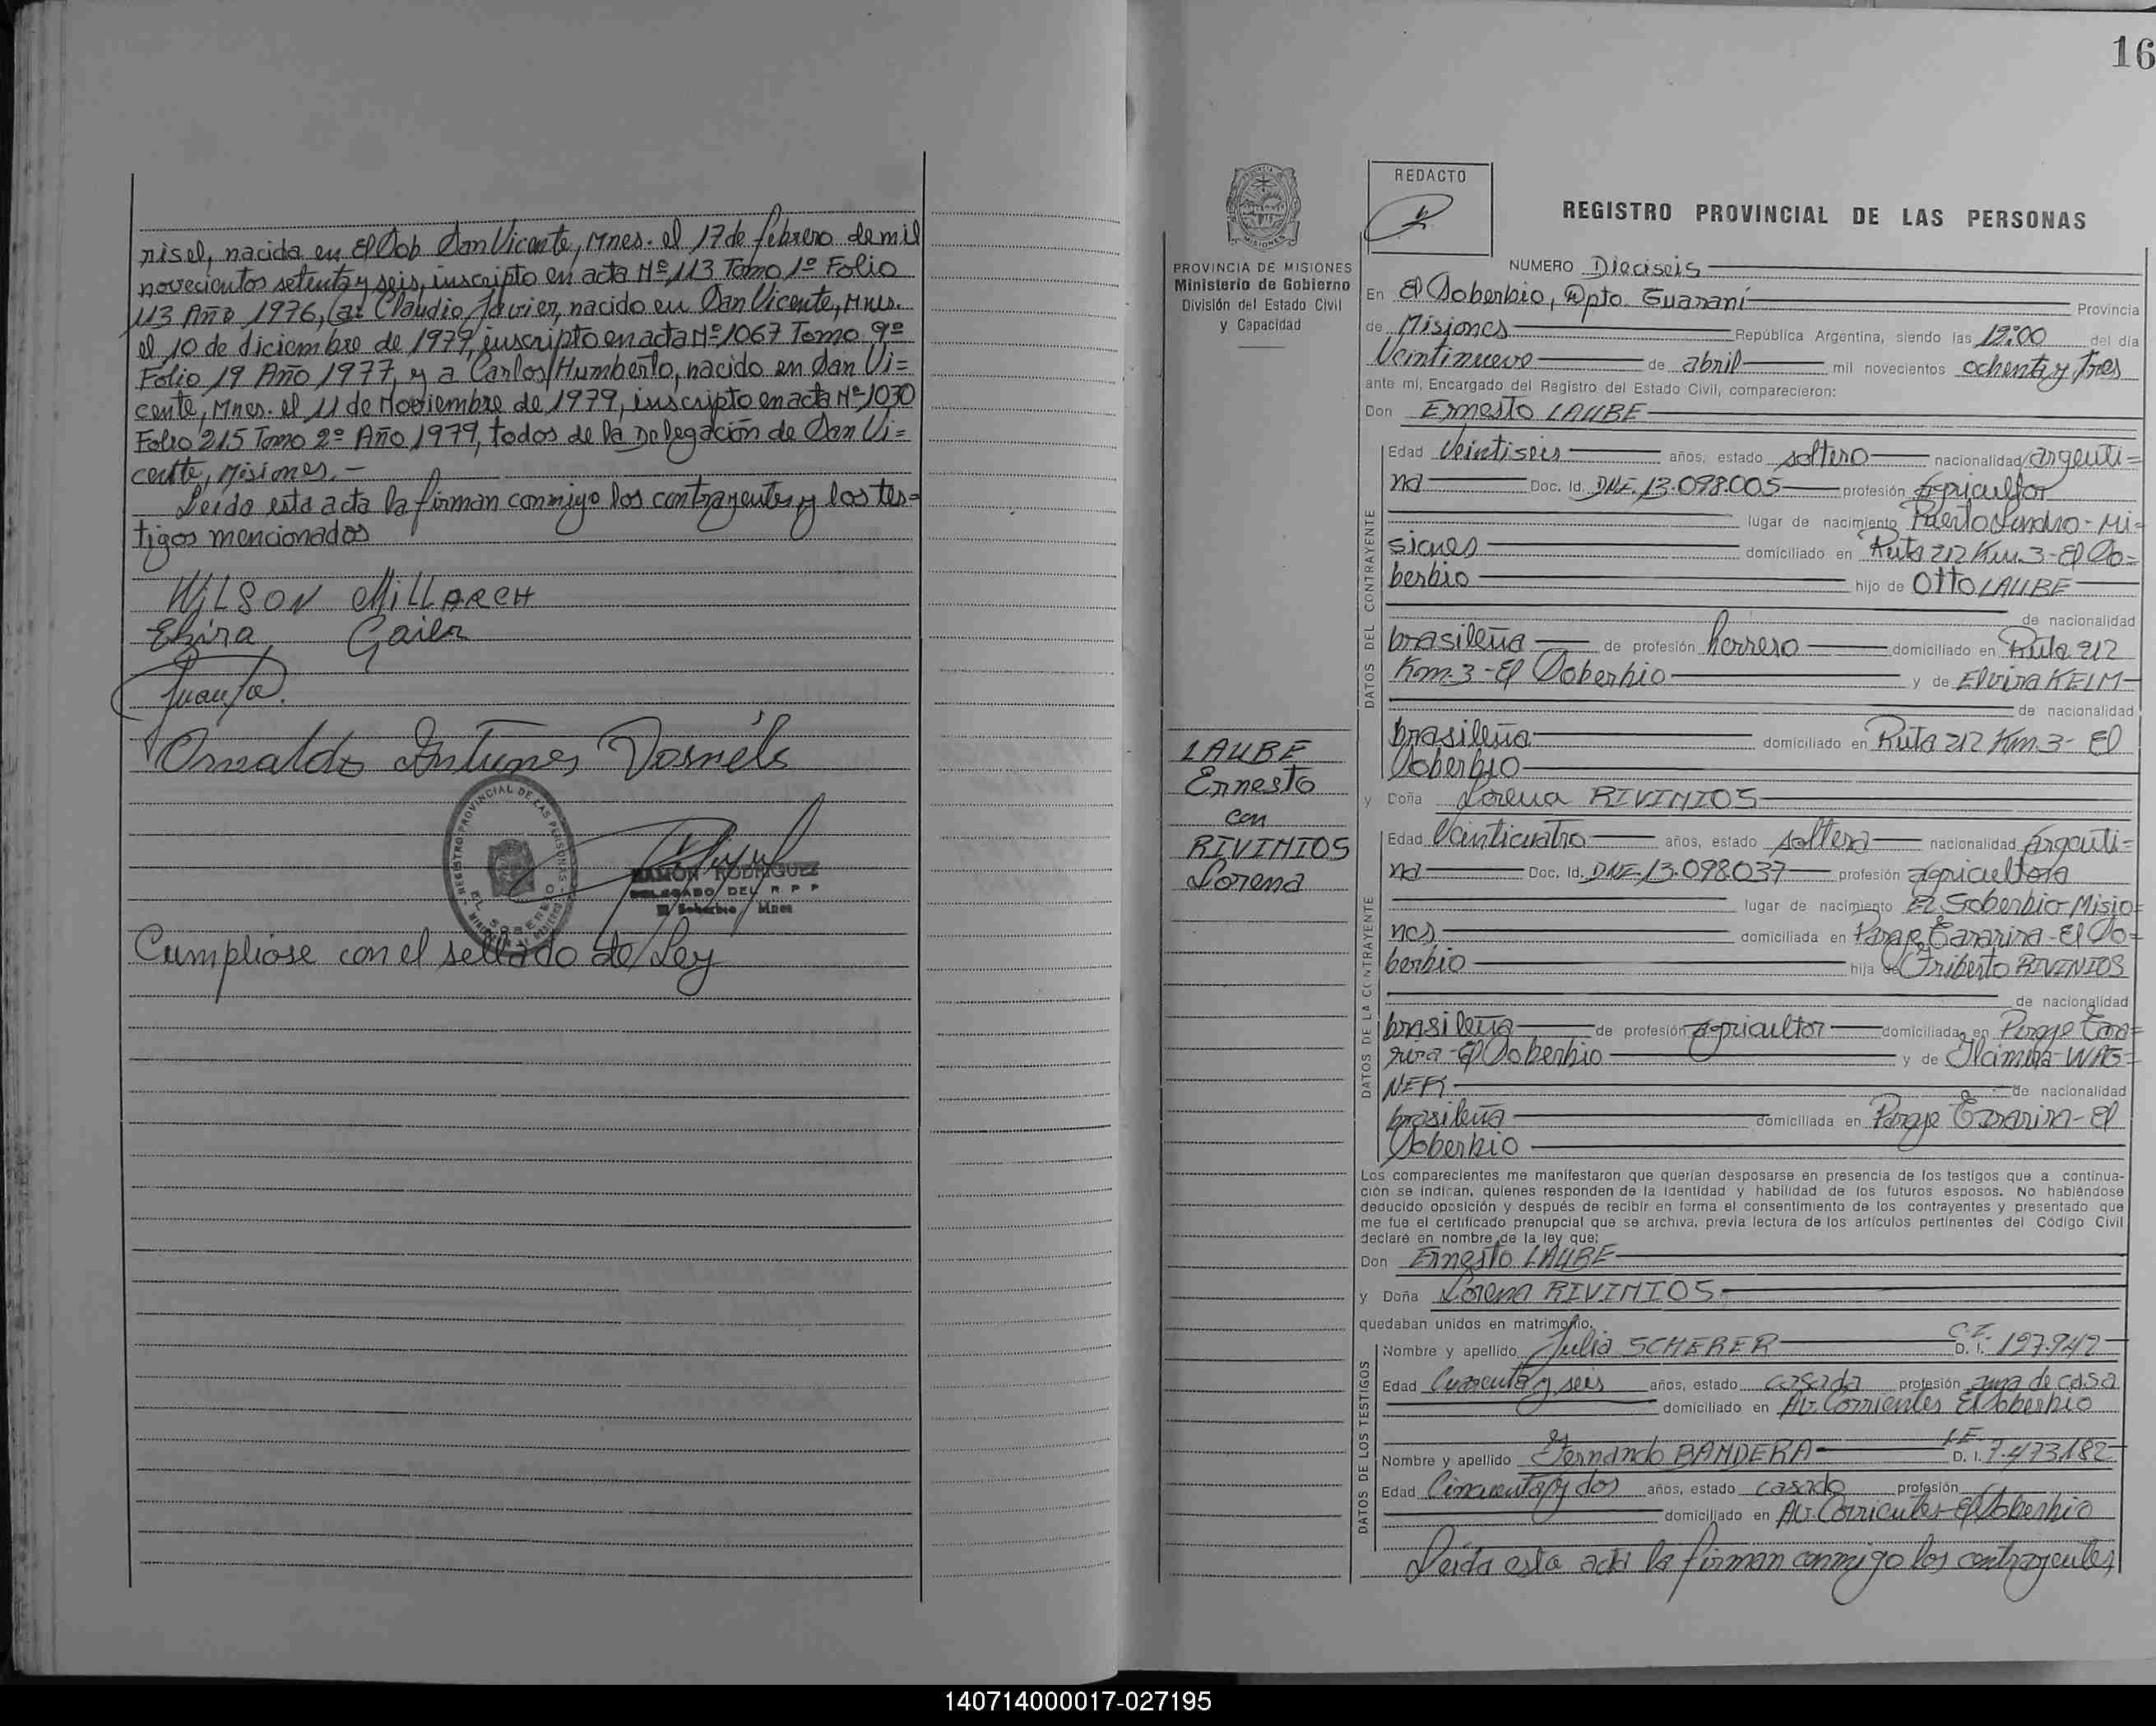 risel, nacida en El Sob San Vicente, Mnes. el 17 de febrero de mil
novecientos setenta y seis, inscripto en acta Nº 113 Tomo 1º Folio
113 Año 1976, a Claudio Javier, nacido en San Vicente, Mnes.
el 10 de diciembre de 1977, inscripto en acta Nº 1067 Tomo 9º
Folio 19 Año 1977, y a Carlos Humberto, nacido en San Vi=
cente, Mnes. el 11 de Noviembre de 1979, inscripto en acta Nº 1030
Folio 215 Tomo 2º Año 1979, todos de la Delegación de San Vi=
cente, Misiones.-
Leida esta acta la firman conmigo los contrayentes y los tes=
tigos mencionados
WiLSON MiLLARCH
Osvaldo Antunes
REGISTRO PROVINCIAL DE LAS PERSONAS
EL SOBERBIO
RAMÓN RODRIGUEZ
DELEGADO DEL R. P. P
El Soberbio Mnes
Cumpliose con el sellado de Ley
16
PROVINCIA DE MISIONES
Ministerio de Gobierno
División del Estado Civil
y Capacidad
LAUBE
Ernesto
con
RIVINIOS
Lorena
REDACTO
REGISTRO PROVINCIAL DE LAS PERSONAS
NUMERO Dieciseis
En El Soberbio, Dpto. Guaraní Provincia
de Misiones República Argentina, siendo las 12:00 del día
Veintinueve de abril mil novecientos ochenta y tres
ante mí, Encargado del Registro del Estado Civil, comparecieron:
Don Ernesto LAUBE
DATOS DEL CONTRAYENTE
Edad Veintiseis años, estado soltero nacionalidad argenti=
na Doc. Id. DNI. 13.098.005 profesión agricultor
lugar de nacimiento Puerto Leandro - Mi=
siones domiciliado en Ruta 212 Km. 3 - El So=
berbio hijo de Otto LAUBE
de nacionalidad
brasileña de profesión herrero domiciliado en Ruta 212
Km. 3 - El Soberbio y de Elvira KEIM
de nacionalidad
brasileña domiciliado en Ruta 212 Km. 3 - El
Soberbio
y Doña Lorena RIVINIOS
DATOS DE LA CONTRAYENTE
Edad Veinticuatro años, estado soltera nacionalidad argenti=
na Doc. Id. DNI. 13.098.037 profesión agricultora
lugar de nacimiento El Soberbio - Misio=
nes domiciliada en Paraje - El So=
berbio hija de Friberto RIVINIOS
de nacionalidad
brasileña de profesión agricultor domiciliada en Paraje
- El Soberbio y de WAG=
NER de nacionalidad
brasileña domiciliada en Paraje - El
Soberbio
Los comparecientes me manifestaron que querían desposarse en presencia de los testigos que a continua-
ción se indican, quienes responden de la identidad y habilidad de los futuros esposos. No habiéndose
deducido oposición y después de recibir en forma el consentimiento de los contrayentes y presentado que
me fue el certificado prenupcial que se archiva, previa lectura de los artículos pertinentes del Código Civil
declaré en nombre de la ley que:
Don Ernesto LAUBE
y Doña Lorena RIVINIOS
quedaban unidos en matrimonio.
DATOS DE LOS TESTIGOS
Nombre y apellido Julia SCHERER C.I. D. I. 127.942
Edad Cuarenta y seis años, estado casada profesión ama de casa
domiciliado en Av. Corrientes El Soberbio
Nombre y apellido Fernando BANDERA L.E. D. I. 7.473.182
Edad Cincuenta y dos años, estado casado profesión
domiciliado en Av. Corrientes - El Soberbio
Leida esta acta la firman conmigo los contrayentes
140714000017-027195